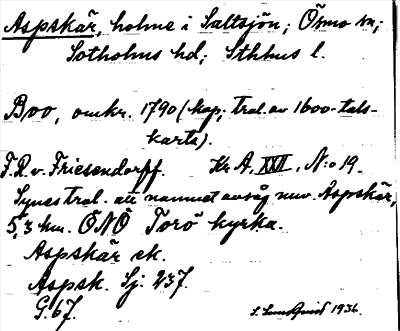 Aspskär, holme i Saltsjön; Ösmo sn;
Sotholms hd; Sthlms l.
Boo, omkr. 1790 (kop. tral. av 1600-tals-
karta).
F. R. v. Friesendorff. Kr A. XXII, N:o 19.
Synes tral. att namnet avsåg nuv. Aspskär,
5,3 km. ÖNÖ Torö kyrka.
Aspskär ek.
Aspsk. Sj: 237.
G. 67.
S. Lundquist 1936.